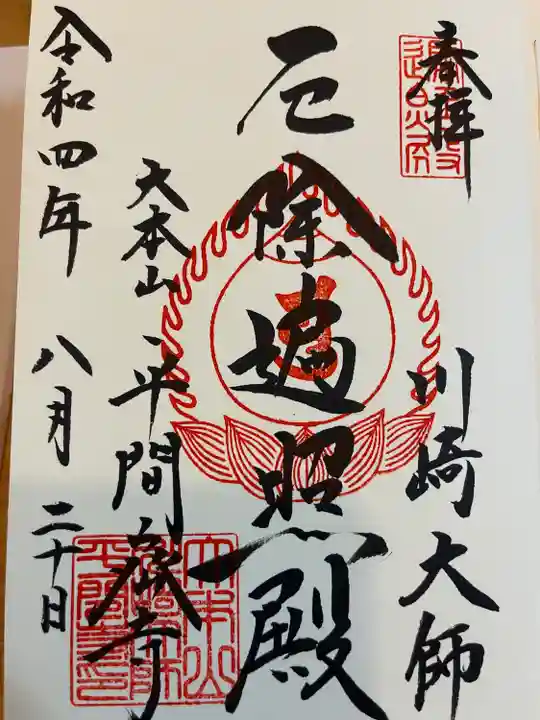 奉拝
川崎大師
厄除遍照殿
大本山 平間寺
令和四年 八月 二十日